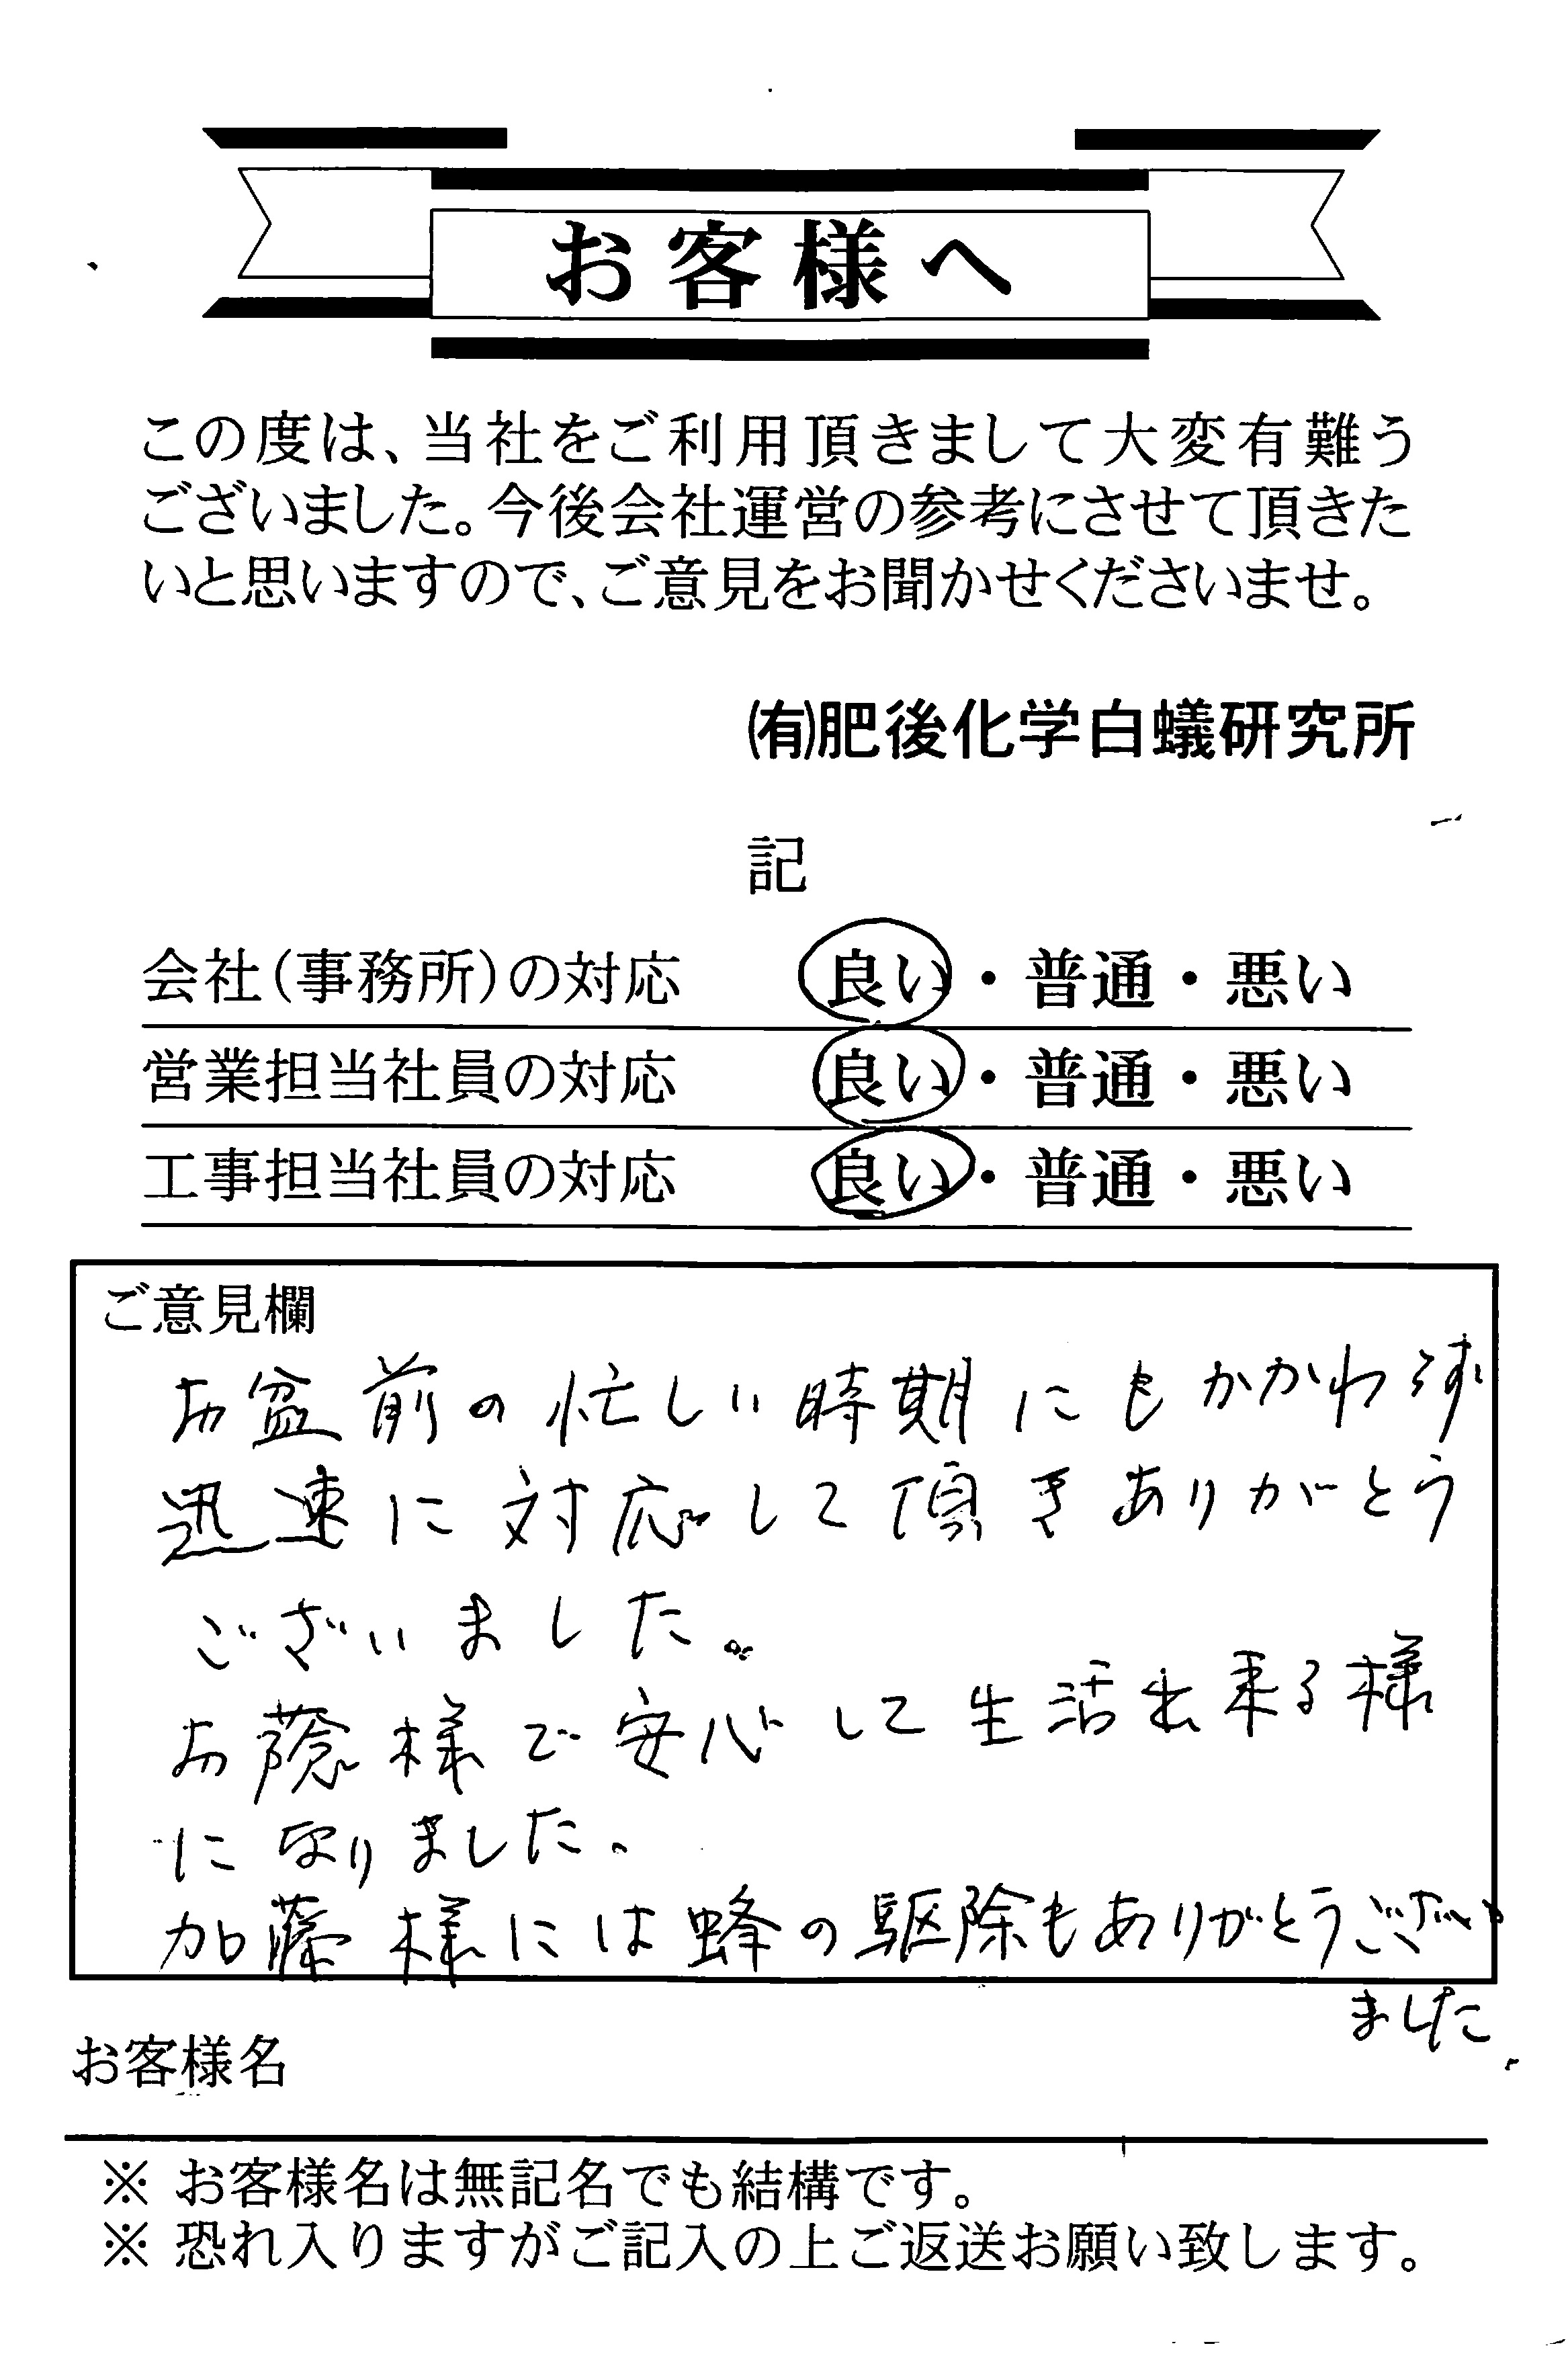 お客様へ
この度は、当社をご利用頂きまして大変有難う
ございました。今後会社運営の参考にさせて頂きた
いと思いますので、ご意見をお聞かせくださいませ。
㈲肥後化学白蟻研究所
記
会社(事務所)の対応 良い・普通・悪い
営業担当社員の対応 良い・普通・悪い
工事担当社員の対応 良い・普通・悪い
ご意見欄
お盆前の忙しい時期にもかかわらず
迅速に対応して頂きありがとう
ございました。
お蔭様で安心して生活出来る様
になりました。
加藤様には蜂の駆除もありがとうござい
ました
お客様名
※ お客様名は無記名でも結構です。
※ 恐れ入りますがご記入の上ご返送お願い致します。